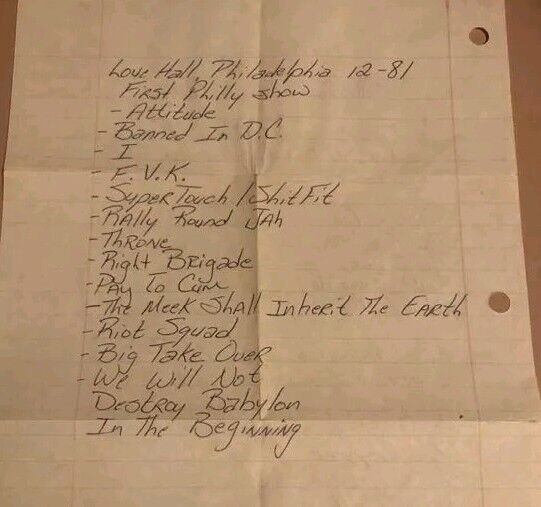 Love Hall, Philadelphia 12-81
First Philly show
- Attitude
- Banned In D.C.
- I
- F.V.K.
- Super Touch / Shit Fit
- Rally Round Jah
- Throne
- Right Brigade
- Pay To Cum
- The Meek Shall Inherit The Earth
- Riot Squad
- Big Take Over
- We Will Not
Destroy Babylon
In The Beginning